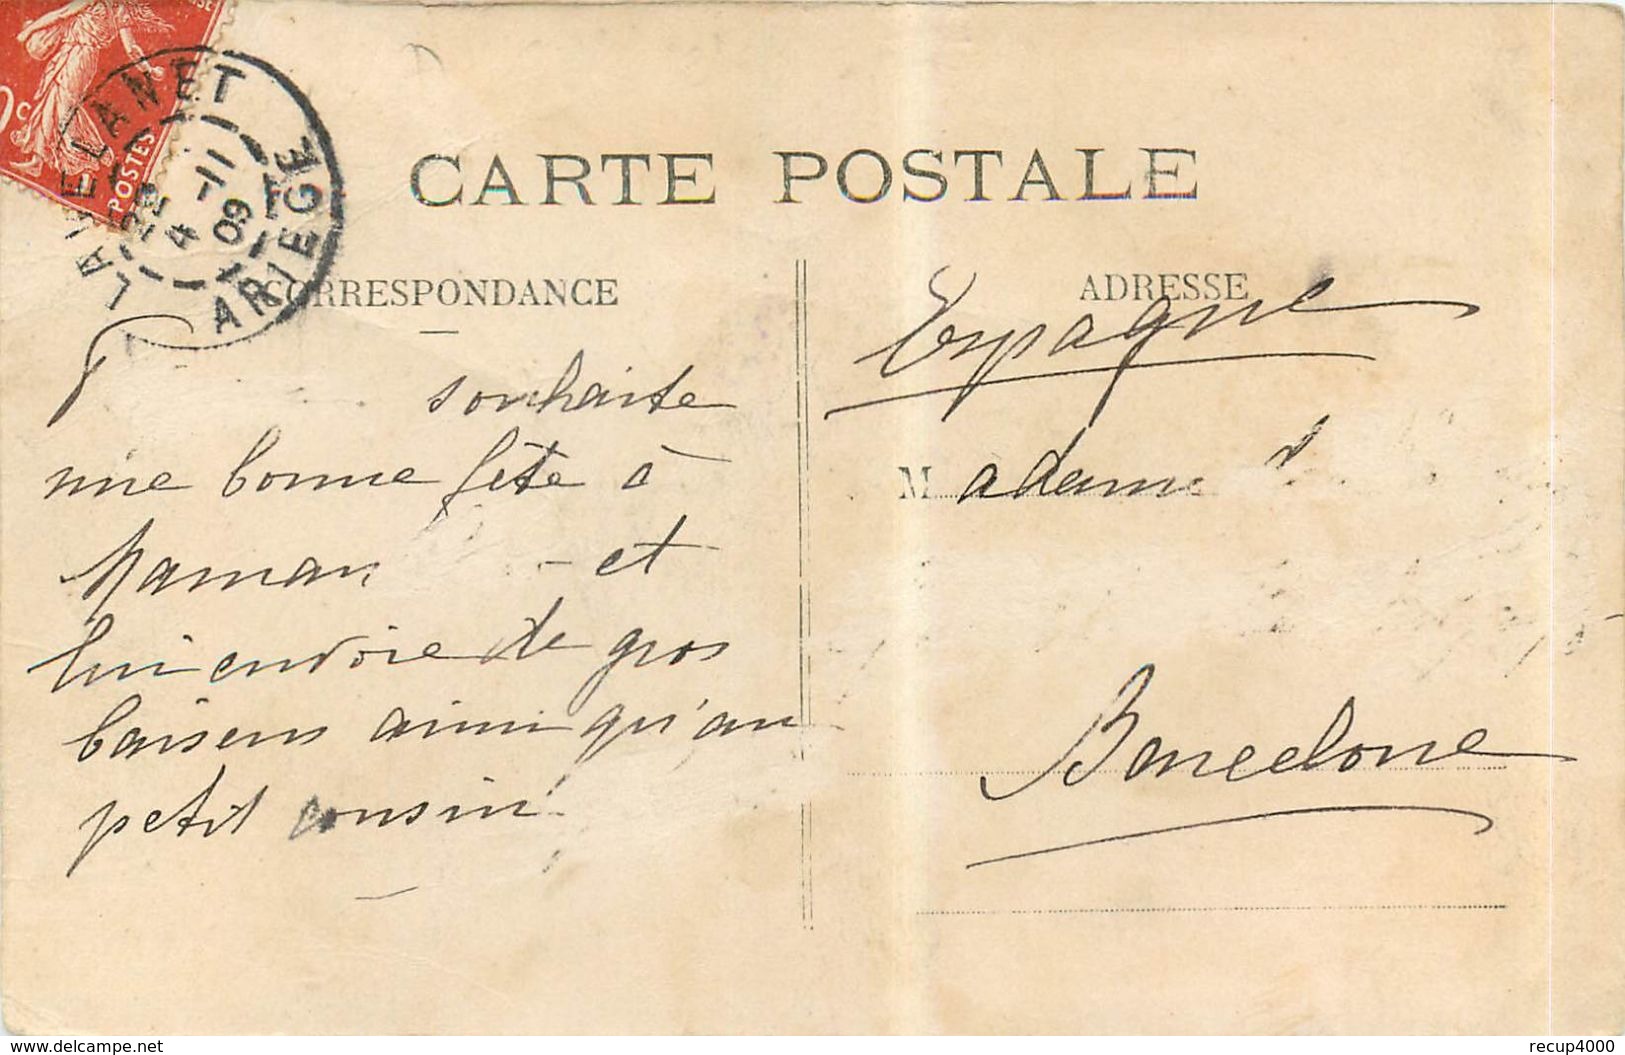 POSTES
LAVELANET
22 -11
4 09
ARIEGE
CARTE POSTALE
CORRESPONDANCE
souhaite
une bonne fête à
Maman - et
lui envoie de gros
baisers ainsi qu'au
petit cousin.
ADRESSE
Espagne
Madame
Barcelone
www.delcampe.net
recup4000